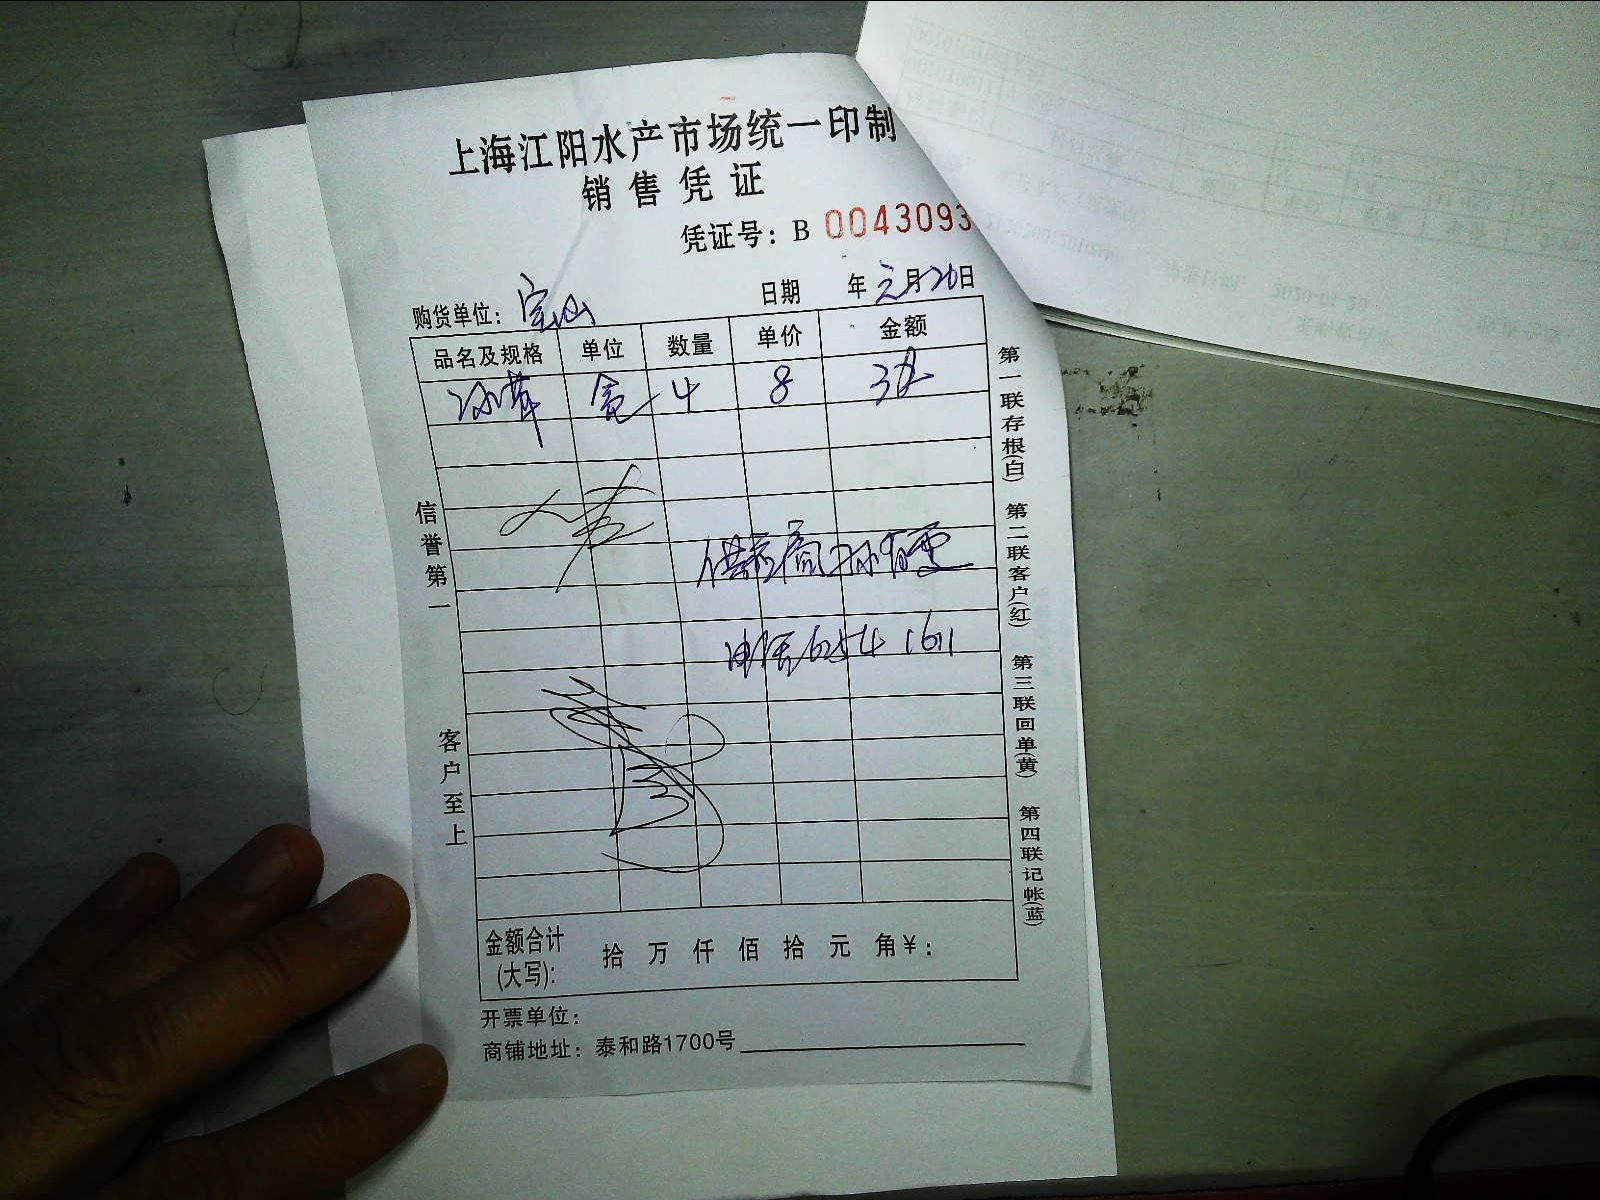 上海江阳水产市场统一印制
销售凭证
凭证号：B 0043093
购货单位：宝山 日期 年元月20日
品名及规格 单位 数量 单价 金额
冰草 盒 4 8 32
供应商
电话 6254 1611
信誉第一
客户至上
第一联存根(白) 第二联客户(红) 第三联回单(黄) 第四联记帐(蓝)
金额合计 拾 万 仟 佰 拾 元 角￥：
(大写):
开票单位：
商铺地址：泰和路1700号
2020-01-20